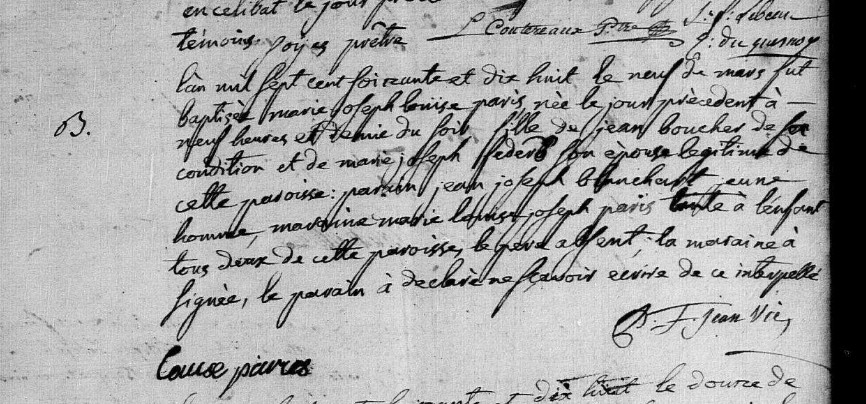 en celibat le jour
témoins. soyez prêtre L Contereaux P.tre J. f. Lebeau
P: du quesnoy
L'an mil sept cent soixante et dix huit le neuf de mars fut
B. baptisée marie joseph louise paris, née le jour precedent à
neuf heures et demie du soir fille de jean boucher de
condition et de marie joseph son épouse legitime de
cette paroisse: parain jean joseph blanchart jeune
homme, maraine marie louise joseph paris tante à l'enfant
tous deux de cette paroisse, le pere absent, la maraine à
signée, le parain à declaré ne sçavoir ecrire de ce interpellé
D. F. jean Vic,
Louise paris
dix huit le douze de